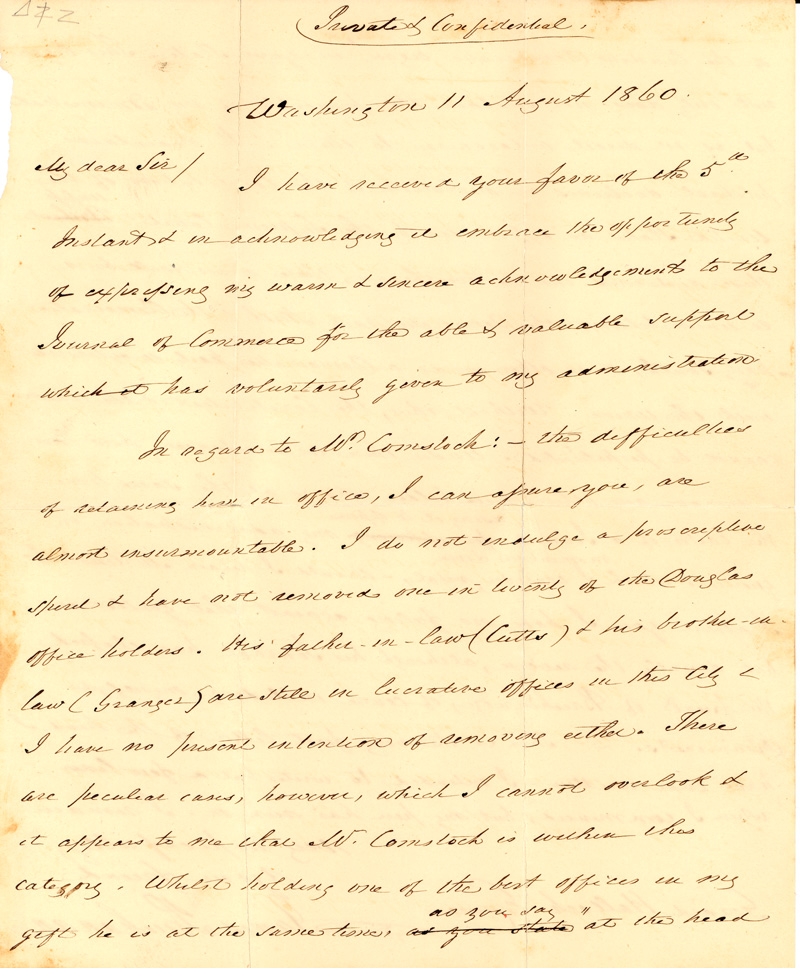 Private & Confidential.
Washington 11 August 1860.
My dear Sir/
I have received your favor of the 5th
Instant & in acknowledging it embrace the opportunity
of expressing my warm & sincere acknowledgements to the
Journal of Commerce for the able & valuable support
which it has voluntarily given to my administration
In regard to Mr. Comstock: – the difficulties
of retaining him in office, I can assure you, are
almost insurmountable. I do not indulge a proscriptive
spirit & have not removed one in twenty of the Douglas
office holders. His father-in-law (Cutts) & his brother-in-
law (Granger) are still in lucrative offices in this City &
I have no present intention of removing either. There
are peculiar cases, however, which I cannot overlook &
it appears to me that Mr. Comstock is within this
category. Whilst holding one of the best offices in my
as you say "
gift he is at the same time, as you state at the head